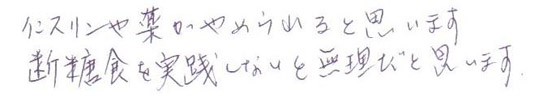 インスリンや薬がやめられると思います
断糖食を実践しないと無理だと思います.